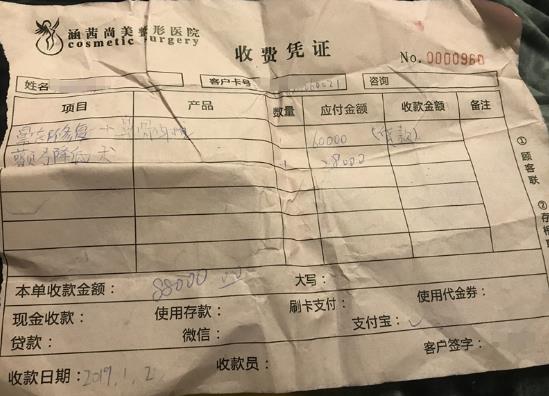 涵茜尚美整形医院
cosmetic surgery
收费凭证
No. 0000960
姓名
客户卡号
咨询
项目 产品 数量 应付金额 收款金额 备注
60000
颧骨降低术 28000
本单收款金额: 88000 大写:
现金收款: 使用存款: 刷卡支付: 使用代金券:
贷款: 微信: 支付宝:
客户签字:
收款日期: 2019.1.2 收款员:
①顾客联
②存根